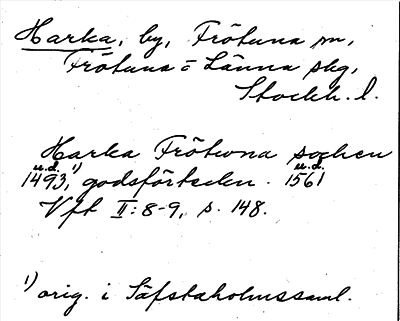 Harka, by, Frötuna sn,
Frötuna o Länna skg,
Stockh. l.
Harka Frötwna sochen
u.d. u.d.
1493,¹⁾ godsförteckn. 1561
Vft II:8-9, s. 148.
1) orig. i Säfstaholmssaml.